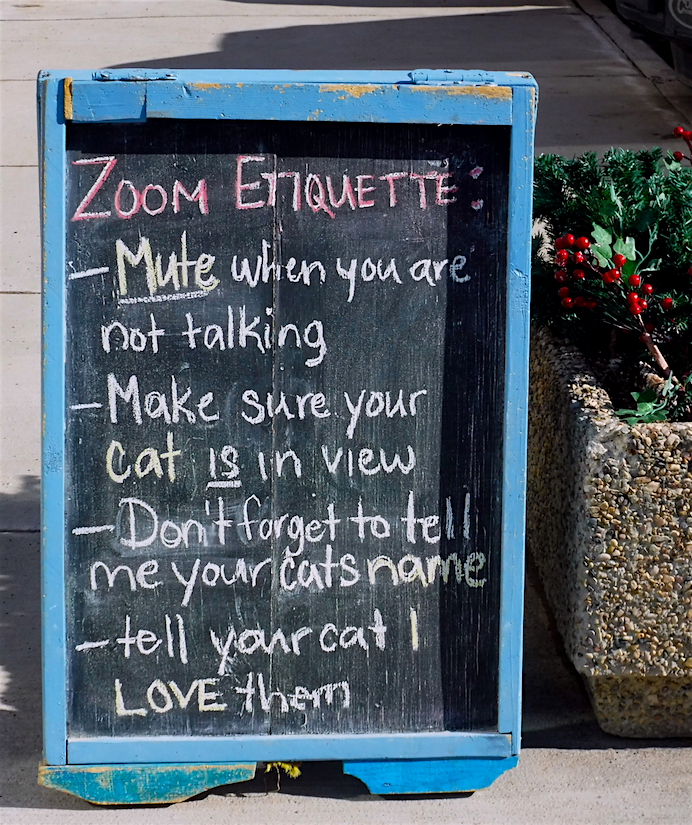 ZOOM ETIQUETTE:
– Mute when you are
not talking
– Make sure your
cat is in view
– Don't forget to tell
me your cats name
– tell your cat I
LOVE them